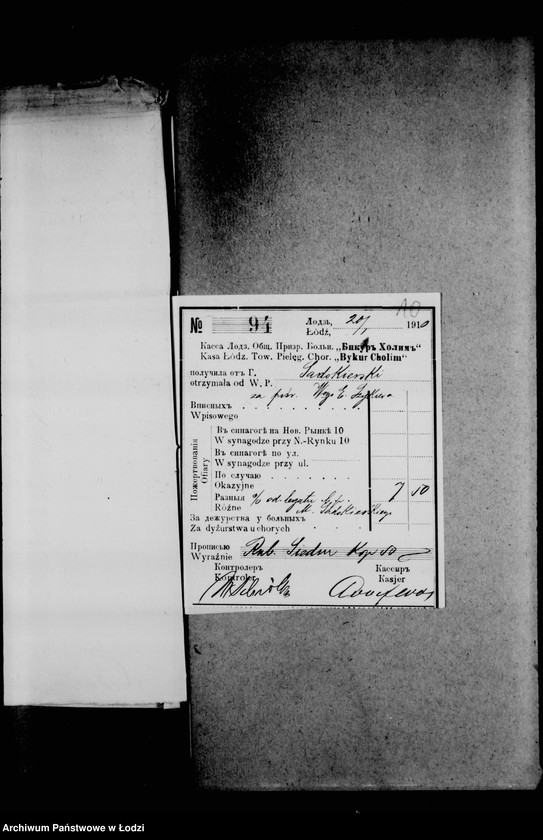 10
№ 94 Лодзь, Łódź, 20/1 1910
Касса Лодз. Общ. Призр. Больн. „Бикуръ Холимъ“
Kasa Łódz. Tow. Pielęg. Chor. „Bykur Cholim“
получила отъ Г.
otrzymała od W. P.
Sadokierski
za
Вписныхъ
Wpisowego
Пожертвованія
Ofiary
Въ синагогѣ на Нов. Рынкѣ 10
W synagodze przy N.-Rynku 10
Въ синагогѣ по ул.
W synagodze przy ul.
По случаю
Okazyjne
Разныя
Różne
% od legatu
7 50
За дежурства у больныхъ
Za dyżurstwa u chorych
Прописью
Wyraźnie
Rub. Siedm Kop 50
Контролеръ
Kontroler
Кассиръ
Kasjer
Archiwum Państwowe w Łodzi